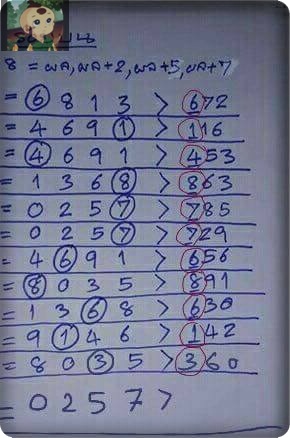 8 = ผล, ผล+2, ผล+5, ผล+7
= 6 8 1 3 > 672
= 4 6 9 1 > 116
= 4 6 9 1 > 453
= 1 3 6 8 > 863
= 0 2 5 7 > 785
= 0 2 5 7 > 729
= 4 6 9 1 > 656
= 8 0 3 5 > 891
= 1 3 6 8 > 630
= 9 1 4 6 > 142
= 8 0 3 5 > 360
= 0 2 5 7 >